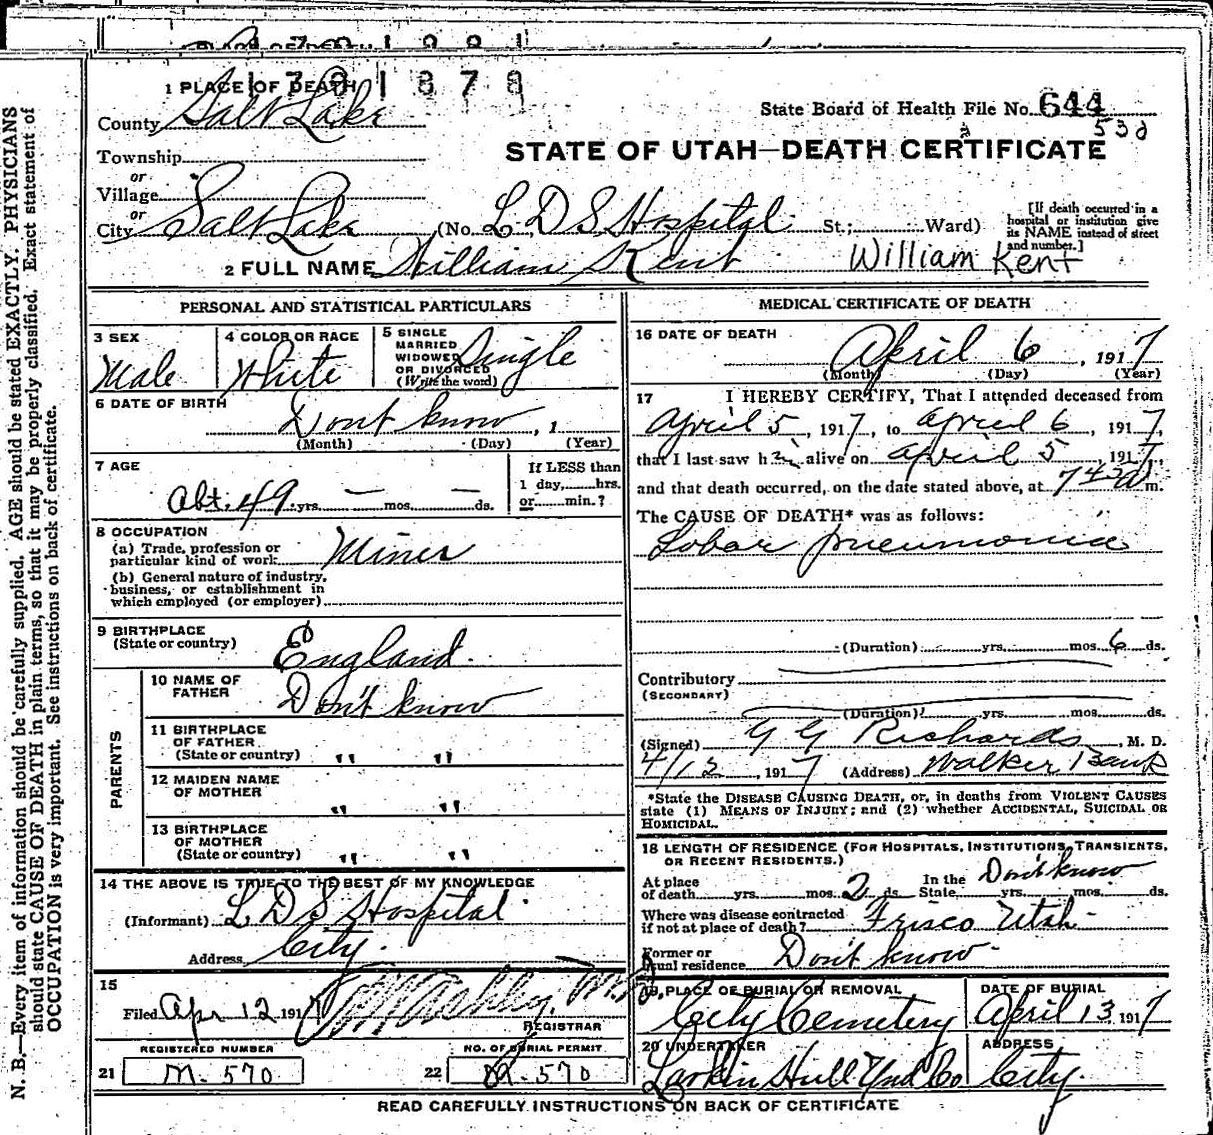 1 PLACE OF DEATH 1781878
County Salt Lake
State Board of Health File No. 644
Township
530
or
STATE OF UTAH—DEATH CERTIFICATE
Village
or
City Salt Lake (No. L D S Hospital St.; Ward)
[If death occurred in a
hospital or institution give
its NAME instead of street
and number.]
2 FULL NAME William Kent William Kent
PERSONAL AND STATISTICAL PARTICULARS
3 SEX
Male
4 COLOR OR RACE
White
5 SINGLE
MARRIED
WIDOWED
OR DIVORCED
(Write the word)
Single
6 DATE OF BIRTH
Don't know, 1
(Month) (Day) (Year)
7 AGE
Abt. 49 yrs. — mos. — ds.
If LESS than
1 day, hrs.
or min.?
8 OCCUPATION
(a) Trade, profession or
particular kind of work Miner
(b) General nature of industry,
business, or establishment in
which employed (or employer)
9 BIRTHPLACE
(State or country) England
PARENTS
10 NAME OF
FATHER Don't know
11 BIRTHPLACE
OF FATHER
(State or country) " "
12 MAIDEN NAME
OF MOTHER " "
13 BIRTHPLACE
OF MOTHER
(State or country) " "
14 THE ABOVE IS TRUE TO THE BEST OF MY KNOWLEDGE
(Informant) L D S Hospital
Address City
15
Filed Apr 12 1917 M.D.
REGISTRAR
REGISTERED NUMBER
21 M. 570
NO. OF BURIAL PERMIT
22 570
MEDICAL CERTIFICATE OF DEATH
16 DATE OF DEATH
April 6, 1917
(Month) (Day) (Year)
17 I HEREBY CERTIFY, That I attended deceased from
April 5, 1917, to April 6, 1917,
that I last saw him alive on April 5, 1917,
and that death occurred, on the date stated above, at 7 43 a m.
The CAUSE OF DEATH* was as follows:
Lobar pneumonia
(Duration) yrs. mos. 6 ds.
Contributory
(SECONDARY)
(Duration) yrs. mos. ds.
(Signed) G G Richards, M. D.
4/12, 1917 (Address) Walker Bank
*State the DISEASE CAUSING DEATH, or, in deaths from VIOLENT CAUSES
state (1) MEANS OF INJURY; and (2) whether ACCIDENTAL, SUICIDAL OR
HOMICIDAL.
18 LENGTH OF RESIDENCE (FOR HOSPITALS, INSTITUTIONS, TRANSIENTS,
OR RECENT RESIDENTS.)
At place
of death yrs. mos. 2 ds.
In the
State Don't know yrs. mos. ds.
Where was disease contracted
if not at place of death? Frisco Utah
Former or
usual residence Don't know
19 PLACE OF BURIAL OR REMOVAL
City Cemetery
DATE OF BURIAL
April 13 1917
20 UNDERTAKER
Larkin Hull Und Co
ADDRESS
City
READ CAREFULLY INSTRUCTIONS ON BACK OF CERTIFICATE
N. B.—Every item of information should be carefully supplied. AGE should be stated EXACTLY. PHYSICIANS
should state CAUSE OF DEATH in plain terms, so that it may be properly classified. Exact statement of
OCCUPATION is very important. See instructions on back of certificate.